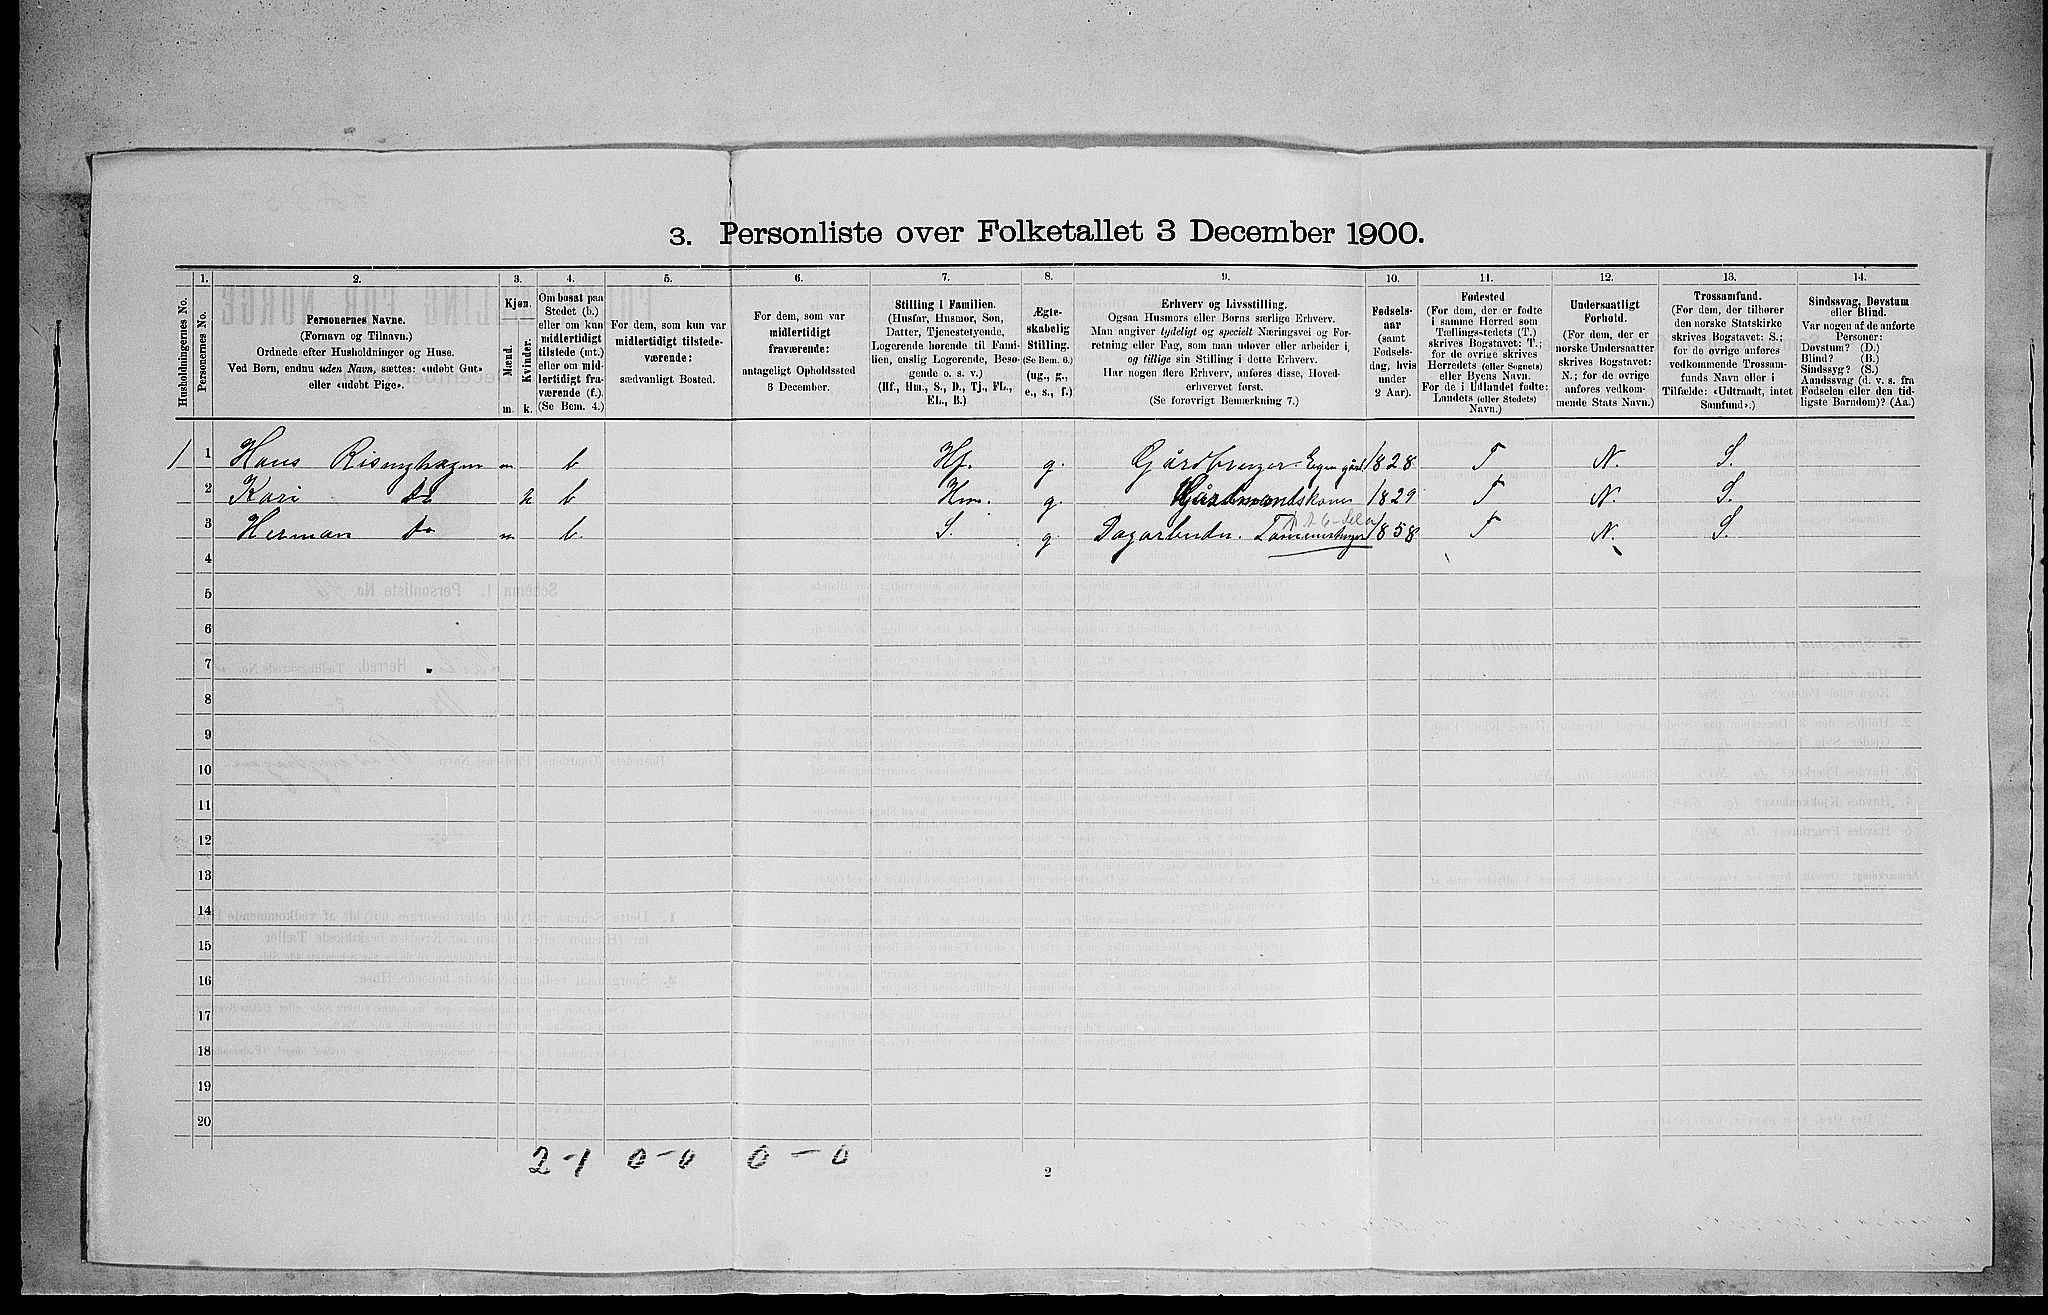 3. Personliste over Folketallet 3 December 1900.
Husholdningernes No.
1.
Personernes No.
2.
Personernes Navne.
(Fornavn og Tilnavn.)
Ordnede efter Husholdninger og Huse.
Ved Børn, endnu uden Navn, sættes: «udøbt Gut»
eller «udøbt Pige».
3.
Kjøn.
Mænd.
Kvinder.
m. k.
4.
Om bosat paa
Stedet (b.)
eller om kun
midlertidigt
tilstede (mt.)
eller om mid-
lertidigt fra-
værende (f.).
(Se Bem. 4.)
5.
For dem, som kun var
midlertidigt tilstede-
værende:
sædvanligt Bosted.
6.
For dem, som var
midlertidigt
fraværende:
antageligt Opholdssted
3 December.
7.
Stilling i Familien.
(Husfar, Husmor, Søn,
Datter, Tjenestetyende,
Logerende hørende til Fami-
lien, enslig Logerende, Besø-
gende o. s. v.)
(Hf., Hm., S., D., Tj., FL.,
EL., B.)
8.
Ægte-
skabelig
Stilling.
(Se Bem. 6.)
(ug., g.,
e., s., f.)
9.
Erhverv og Livsstilling.
Ogsaa Husmors eller Børns særlige Erhverv.
Man angiver tydeligt og specielt Næringsvei og For-
retning eller Fag, som man udøver eller arbeider i,
og tillige sin Stilling i dette Erhverv.
Har nogen flere Erhverv, anføres disse, Hoved-
erhvervet først.
(Se forøvrigt Bemærkning 7.)
10.
Fødsels-
aar
(samt
Fødsels-
dag, hvis
under
2 Aar).
11.
Fødested
(For dem, der er fødte
i samme Herred som
Tællings-stedets (T.)
skrives Bogstavet: T.;
for de øvrige skrives
Herredets (eller Sognets)
eller Byens Navn.
For de i Udlandet fødte:
Landets (eller Stedets)
Navn.)
12.
Undersaatligt
Forhold.
(For dem, der er
norske Undersaatter
skrives Bogstavet:
N.; for de øvrige
anføres vedkom-
mende Stats Navn.)
13.
Trossamfund.
(For dem, der tilhører
den norske Statskirke
skrives Bogstavet: S.;
for de øvrige anføres
vedkommende Trossam-
funds Navn eller i
Tilfælde: «Udtraadt, intet
Samfund».)
14.
Sindssvag, Døvstum
eller Blind.
Var nogen af de anførte
Personer:
Døvstum? (D.)
Blind? (B.)
Sindssyg? (S.)
Aandssvag (d. v. s. fra
Fødselen eller den tid-
ligste Barndom)? (Aa.)
1 1 Hans Risinghagen m b Hf. g. Gårdbruger Egen gård 1828 T N. S.
2 Kari Do k b Hm. g. Gårdmandskone 1829 T N. S.
3 Herman Do m b. S. g. Dagarbeider. Tømmerhuger 1858 T N. S.
4
5
6
7
8
9
10
11
12
13
14
15
16
17
18
19
20
2-1 0-0 0-0
2